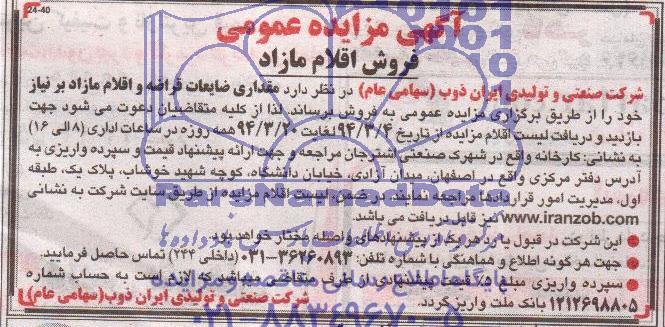 24-40
آگهی مزایده عمومی
فروش اقلام مازاد
شرکت صنعتی و تولیدی ایران ذوب (سهامی عام) در نظر دارد مقداری ضایعات قراضه و اقلام مازاد بر نیاز
خود را از طریق برگزاری مزایده عمومی به فروش برساند. لذا از کلیه متقاضیان دعوت می شود جهت
بازدید و دریافت لیست اقلام مزایده از تاریخ ۹۴/۳/۴ لغایت ۹۴/۳/۲۰ همه روزه در ساعات اداری (۸ الی ۱۶)
به نشانی: کارخانه واقع در شهرک صنعتی اشترجان مراجعه و جهت ارائه پیشنهاد قیمت و سپرده واریزی به
آدرس دفتر مرکزی واقع در اصفهان، میدان آزادی، خیابان دانشگاه، کوچه شهید خوشاب، پلاک یک، طبقه
اول، مدیریت امور قراردادها مراجعه نمایند. در ضمن، لیست اقلام مزایده از طریق سایت شرکت به نشانی
www.iranzob.com نیز قابل دریافت می باشد.
این شرکت در قبول یا رد هر یک از پیشنهادهای واصله مختار خواهد بود.
جهت هر گونه اطلاع و هماهنگی با شماره تلفن: ۳۶۲۶۰۸۹۳-۰۳۱ (داخلی ۲۴۴) تماس حاصل فرمایید.
سپرده واریزی مبلغ قیمت پیشنهادی از طرف متقاضی میباشد که لازم است به حساب شماره
۱۲۱۲۶۹۸۸۰۵ بانک ملت واریز گردد.
شرکت صنعتی و تولیدی ایران ذوب (سهامی عام)
ParsNamadData
پایگاه اطلاع رسانی مناقصه و مزایده
۰۲۱-۸۸۳۴۹۶۷۰-۵